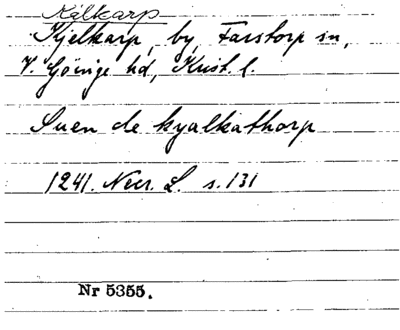 Kälkarp
Kjelkarp, by, Farstorp sn,
V. Göinge hd, Krist. l.
Suen de kyalkathorp
1241. Necr. L. s. 131
Nr 5355.